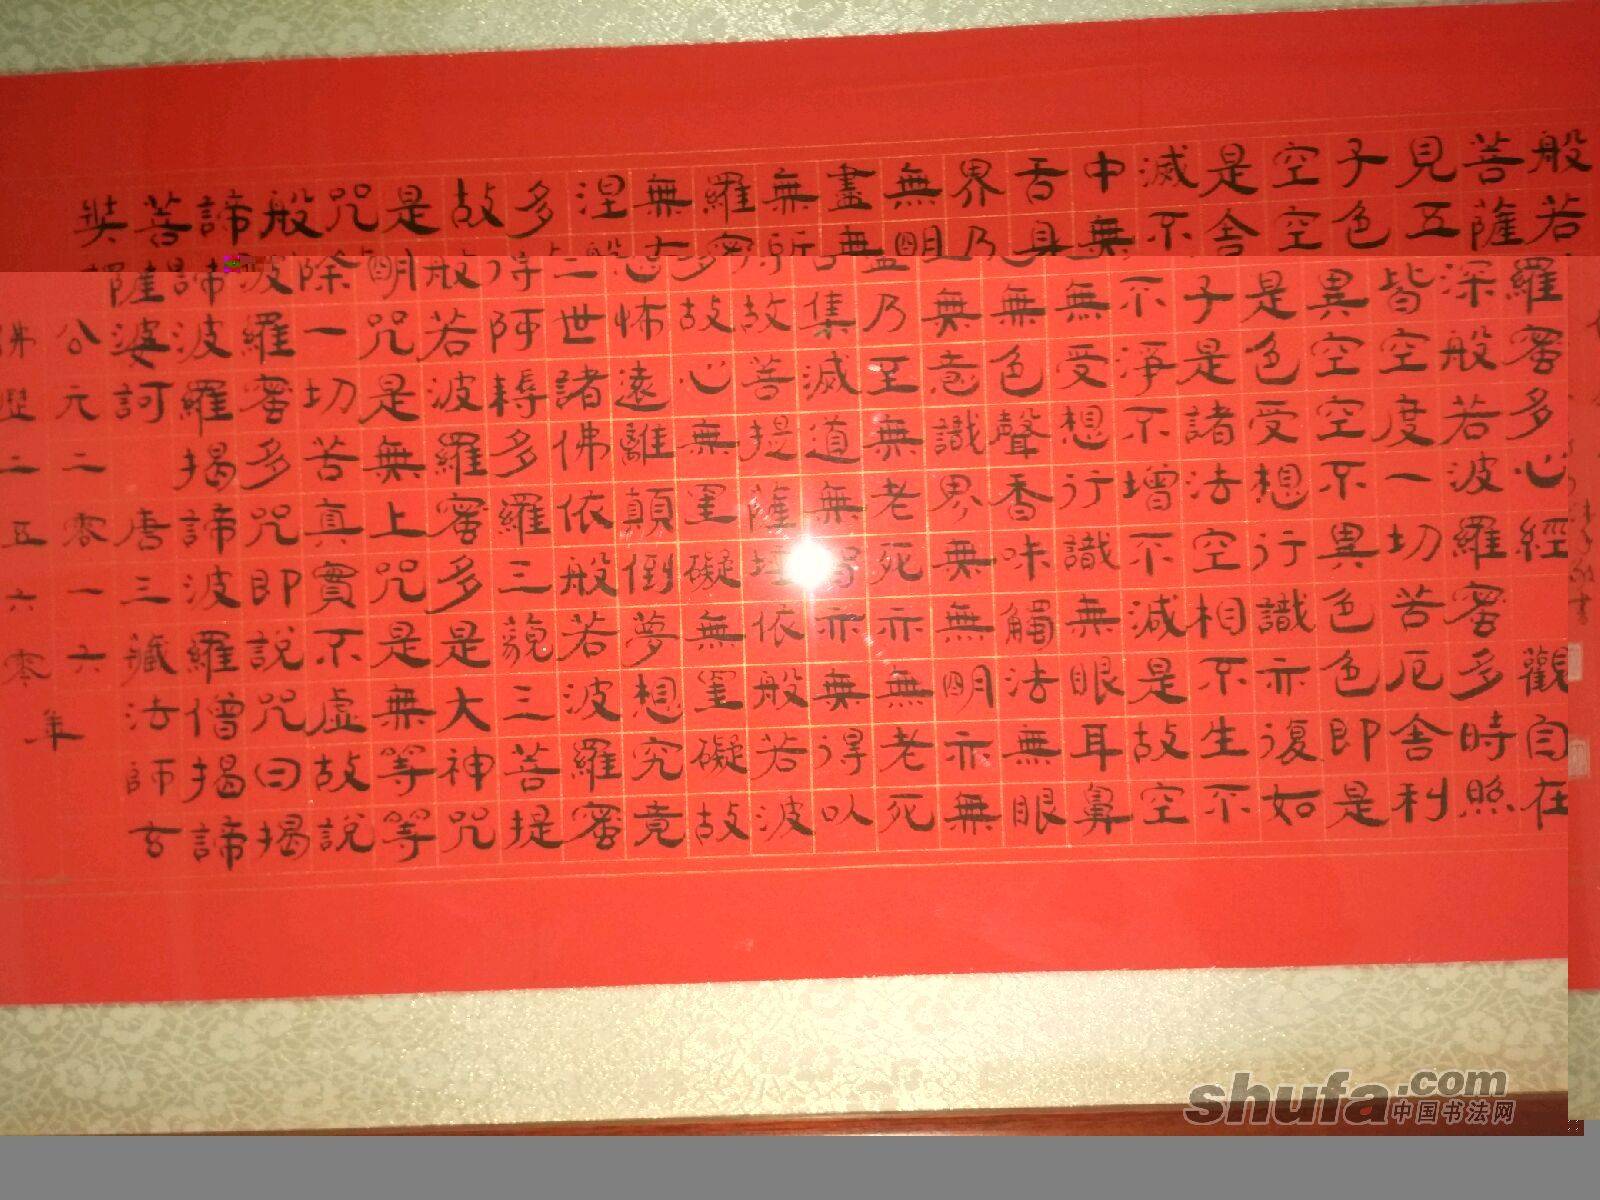 般若羅蜜多心經 觀自在
菩薩深般若波羅蜜多時照
見五皆空度一切苦厄舍利
子色異空空不異色色即是
空空是色受想行識亦復如
是舍子是諸法空相不生不
滅不不淨不增不減是故空
中無無受想行識無眼耳鼻
舌身無色聲香味觸法無眼
界乃無意識界無無明亦無
無明盡乃至無老死亦無老死
盡無集滅道無亦無得以
無所故菩提薩埵依般若波
羅蜜多故心無罣礙無罣礙故
無怖遠離顛倒夢想究竟
涅般三世諸佛依般若波羅蜜
多得阿耨多羅三藐三菩提
故般若波羅蜜多是大神咒
是明咒是無上咒是無等等
咒除一切苦真實不虛故說
般波羅蜜多咒即說咒曰揭
諦諦波羅揭諦波羅僧揭諦
菩薩婆訶 唐三藏法師玄
奘 公元二零一六年
佛歷二五六零
shufa.com
中国书法网